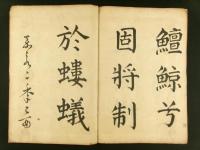 鱣鯨兮
固將制
於螻蟻